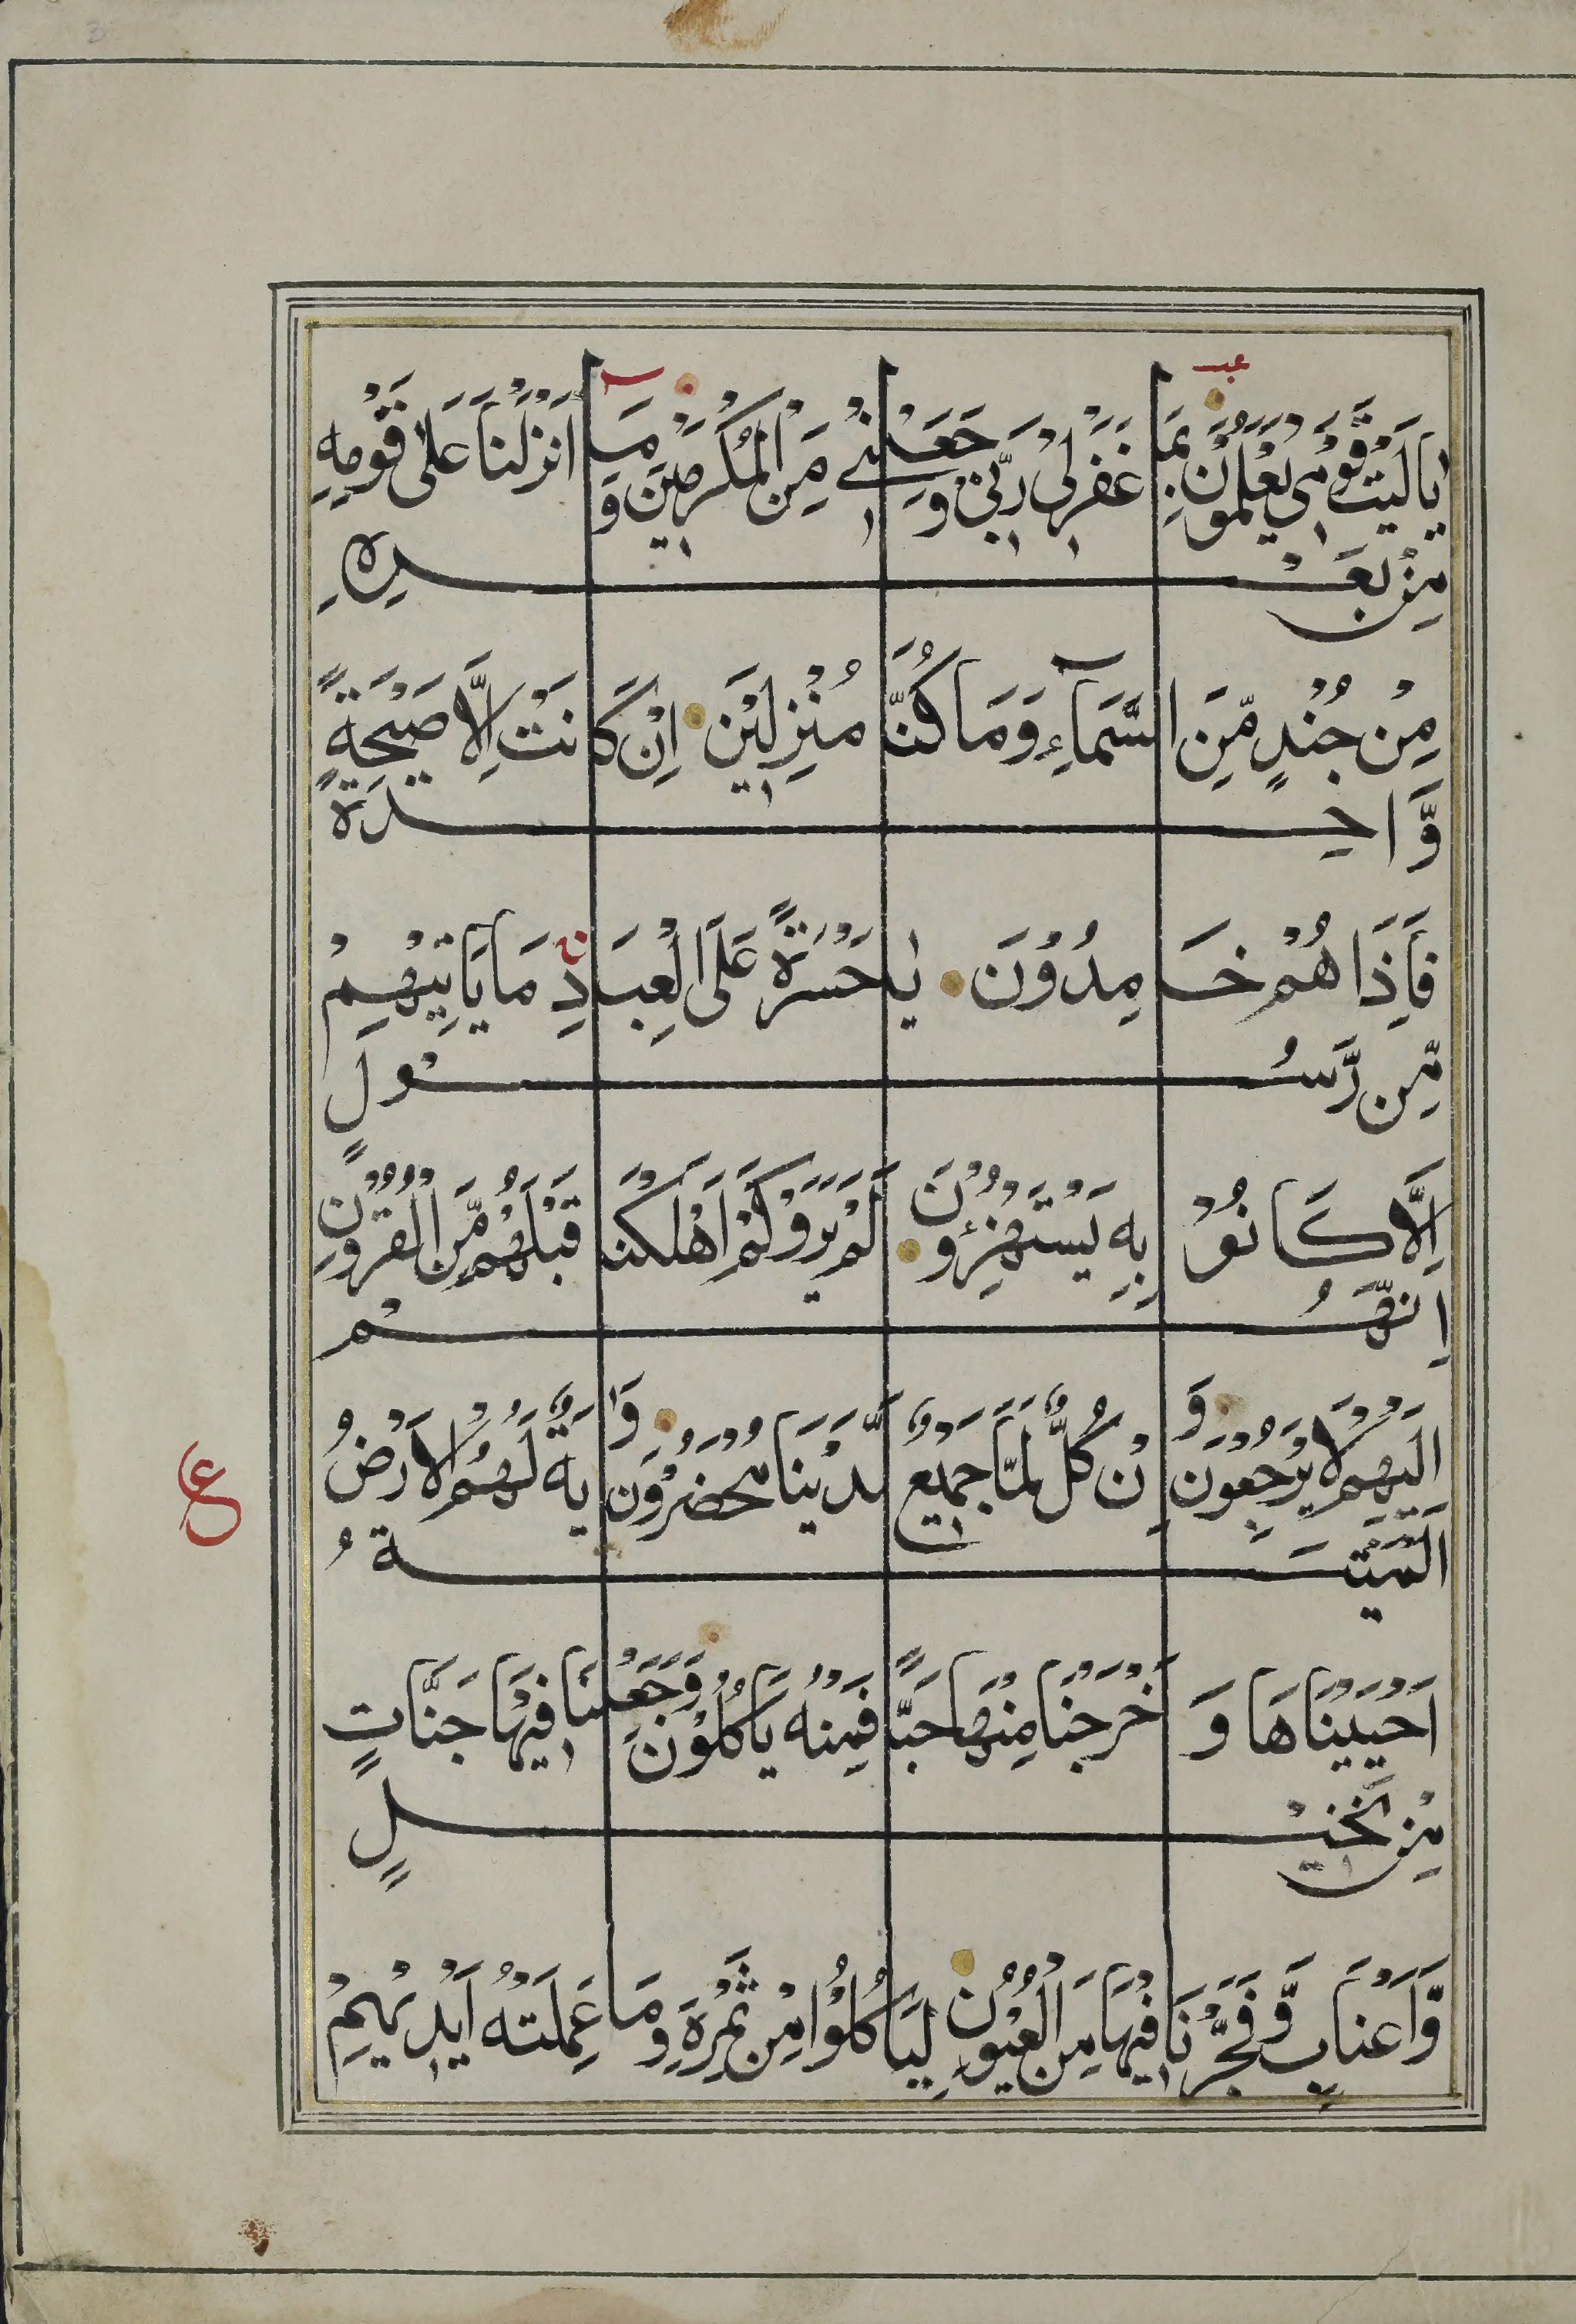 يَا لَيْتَ قَوْمِي يَعْلَمُوْنَ بِمَا غَفَرَلِى رَبِّى وَجَعَلَنِے مِنَ الْمُكْرَمِينَ وَمَا اَنْزَلْنَا عَلَى قَوْمِهِ
مِنْ بَعْدِهِ
مِنْ جُنْدٍ مِّنَ السَّمَآءِ وَمَا كُنَّا مُنْزِلِيْنَ اِنْ كَانَتْ اِلَّا صَيْحَةً
وَّاحِدَةً
فَاِذَا هُمْ خَامِدُوْنَ يَا حَسْرَةً عَلَى الْعِبَادِ مَا يَاتِيْهِمْ
مِّن رَّسُوْلٍ
اِلَّا كَانُوْا بِهِ يَسْتَهْزِؤُنَ اَلَمْ يَرَوْا كَمْ اَهْلَكْنَا قَبْلَهُمْ مِّنَ الْقُرُوْنِ
اِنَّهُمْ
اِلَيْهِمْ لَا يَرْجِعُوْنَ وَاِنْ كُلٌّ لَمَّا جَمِيْعٌ لَّدَيْنَا مُحْضَرُوْنَ وَاٰيَةٌ لَهُمُ الْاَرْضُ
الْمَيْتَةُ
اَحْيَيْنَاهَا وَاَخْرَجْنَا مِنْهَا حَبًّا فَمِنْهُ يَاكُلُوْنَ وَجَعَلْنَا فِيْهَا جَنَّاتٍ
مِنْ نَّخِيْلٍ
وَّاَعْنَابٍ وَّفَجَّرْنَا فِيْهَا مِنَ الْعُيُوْنِ لِيَاكُلُوْا مِنْ ثَمَرِهِ وَمَا عَمِلَتْهُ اَيْدِيْهِمْ
ع